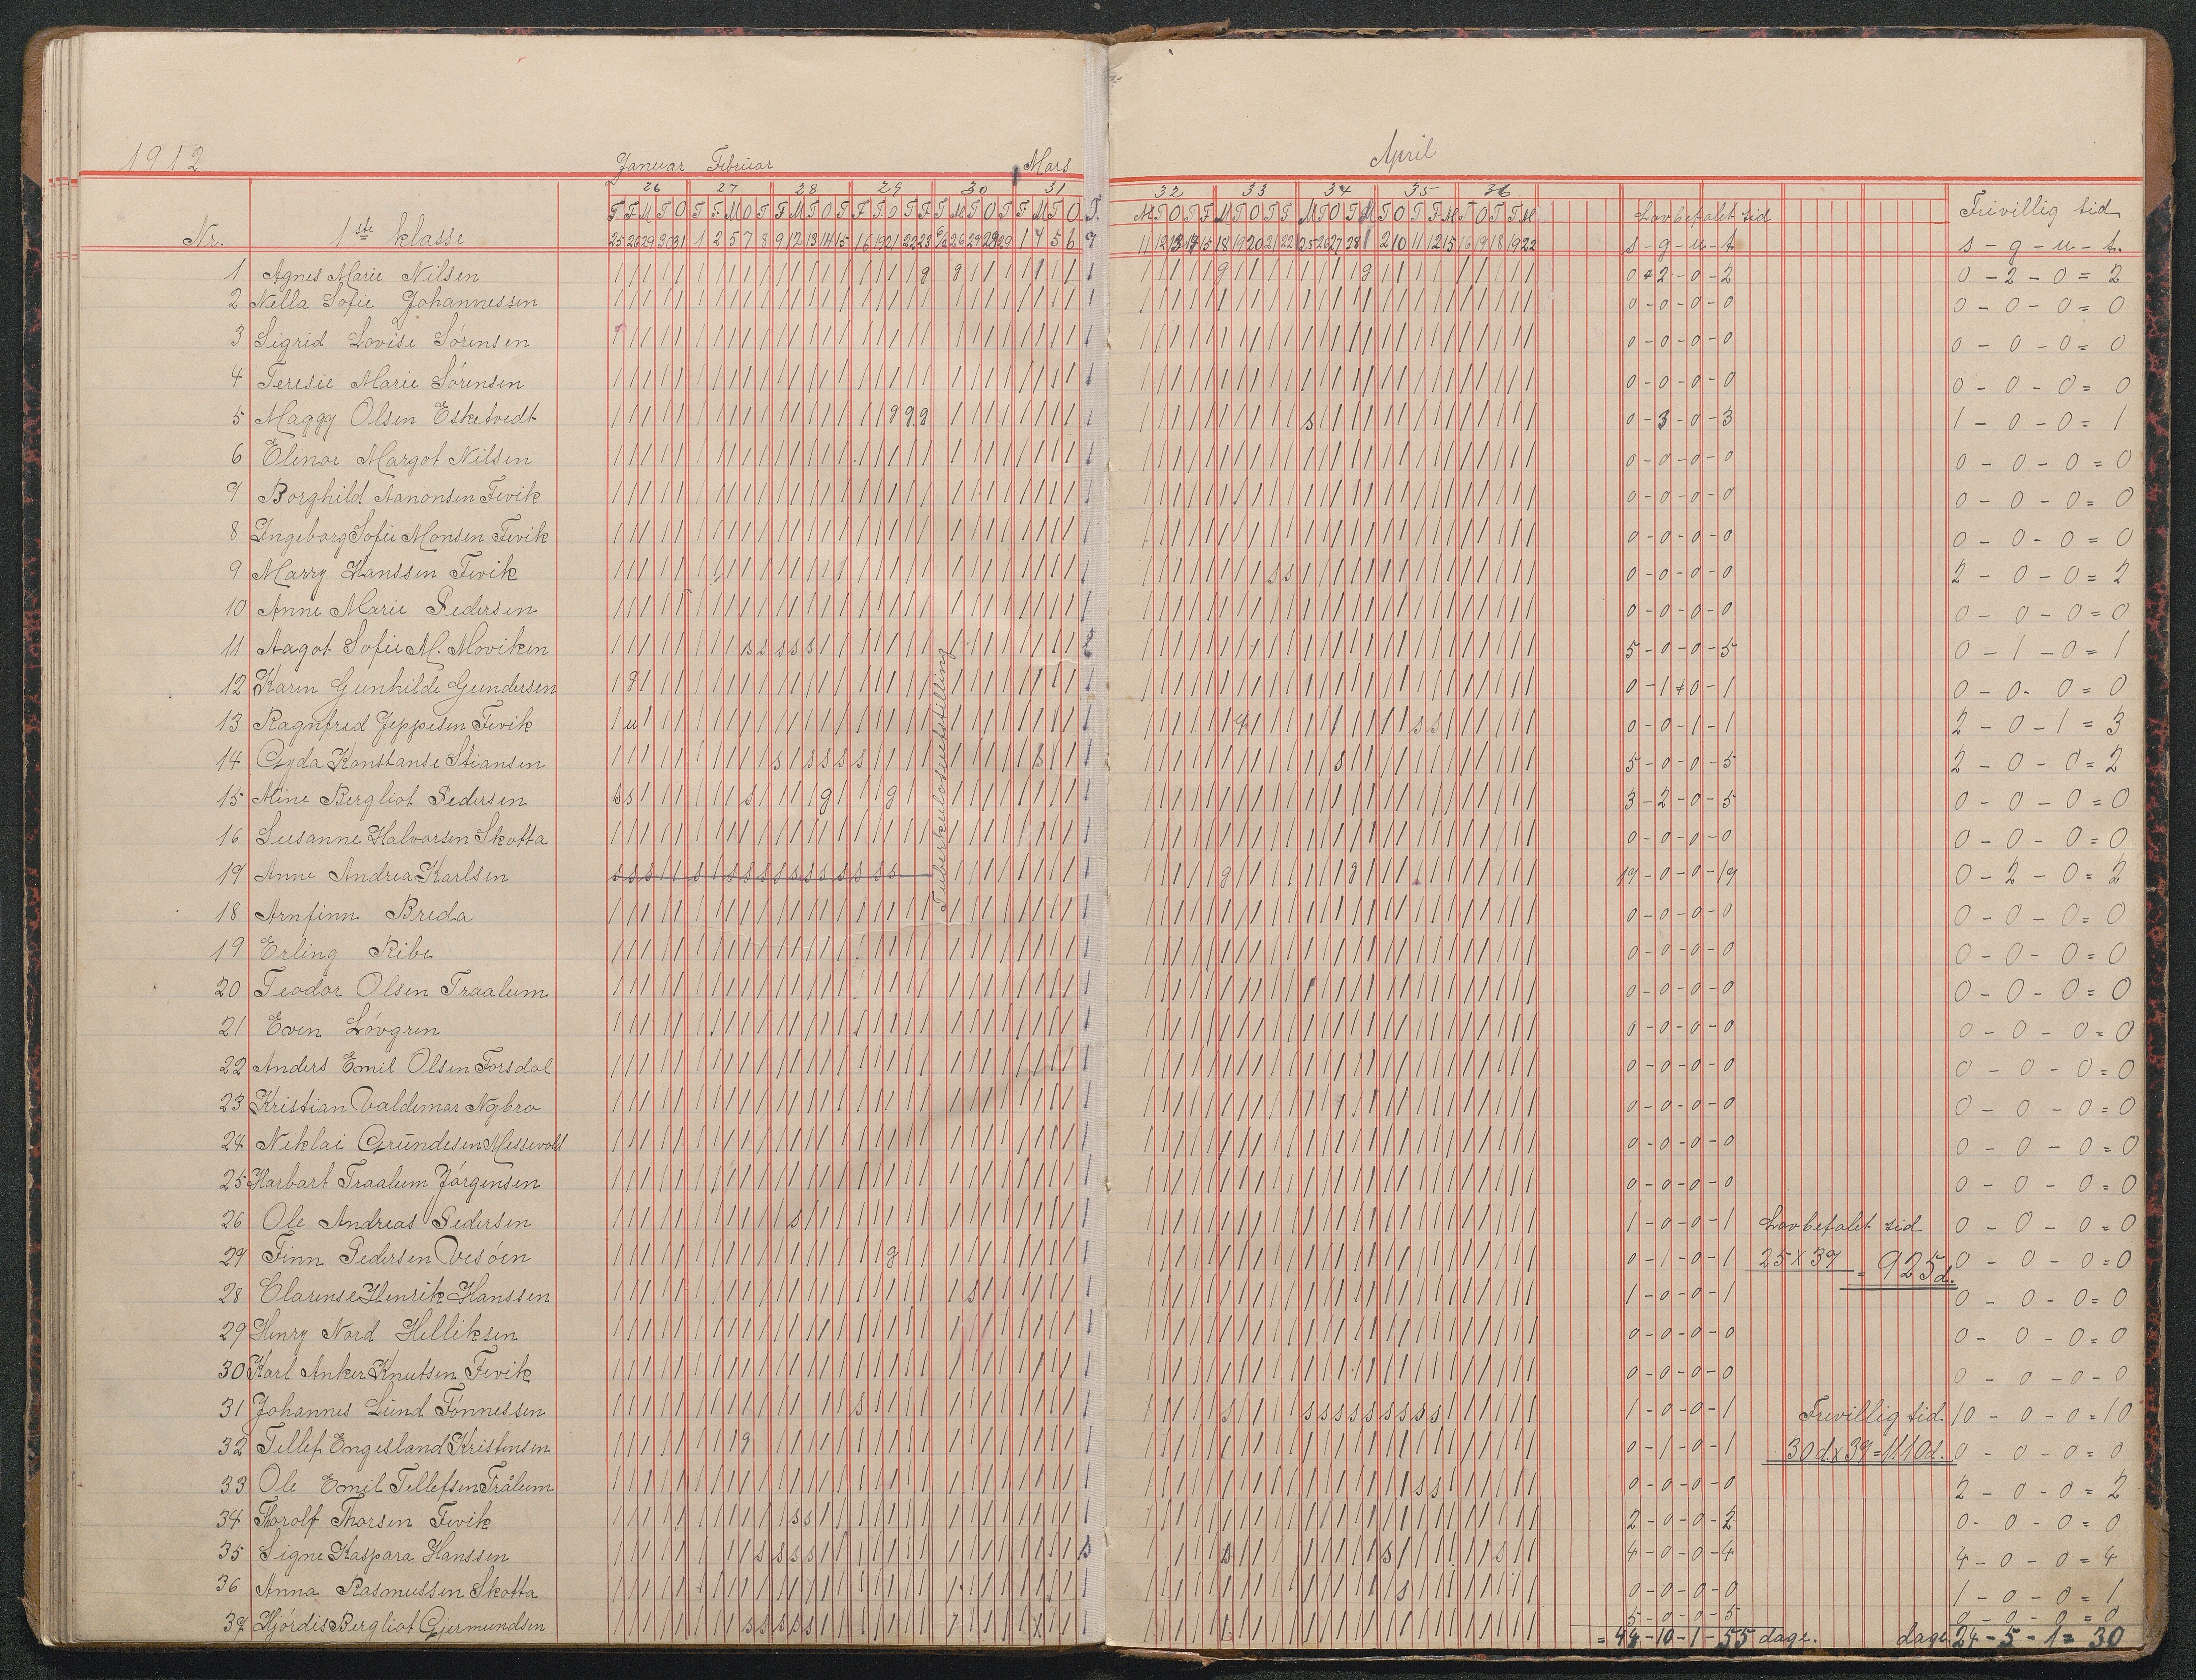 1912
Januar Februar Mars April
26 27 28 29 30 31 32 33 34 35 36
Nr. 1ste klasse Lovbefalet tid Frivillig tid
s - g - u - t s - g - u - t.
1 Agnes Marie Nilsen 0-2-0-2 0-2-0=2
2 Nella Sofie Johannessen 0-0-0-0 0-0-0=0
3 Sigrid Lovise Sörensen 0-0-0-0 0-0-0=0
4 Teresie Marie Sörensen 0-0-0-0 0-0-0=0
5 Maggy Olsen Esketvedt 0-3-0-3 1-0-0=1
6 Elinor Margot Nilsen 0-0-0-0 0-0-0=0
7 Borghild Aanonsen Fevik 0-0-0-0 0-0-0=0
8 Ingeborg Sofie Monsen Fevik 0-0-0-0 0-0-0=0
9 Marry Hanssen Fevik 0-0-0-0 2-0-0=2
10 Anne Marie Pedersen 0-0-0-0 0-0-0=0
11 Aagot Sofie M. Moviken 5-0-0-5 0-1-0=1
12 Karin Gunhilde Gundersen 0-1-0-1 0-0-0=0
13 Ragnfred Jeppesen Fevik 0-0-1-1 2-0-1=3
14 Gyda Konstanse Stiansen 5-0-0-5 2-0-0=2
15 Mine Bergliot Pedersen 3-2-0-5 0-0-0=0
16 Susanne Halvorsen Skotta 0-0-0-0 0-0-0=0
17 Anne Andrea Karlsen 17-0-0-17 0-2-0=2
Tuberkuloseutstilling
18 Arnfinn Breda 0-0-0-0 0-0-0=0
19 Erling Ribe 0-0-0-0 0-0-0=0
20 Teodor Olsen Traalum 0-0-0-0 0-0-0=0
21 Even Lövgren 0-0-0-0 0-0-0=0
22 Anders Emil Olsen Forsdal 0-0-0-0 0-0-0=0
23 Kristian Valdemar Nybro 0-0-0-0 0-0-0=0
24 Niklai Grundesen Messevold 0-0-0-0 0-0-0=0
25 Harbart Traalum Jörgensen 0-0-0-0 0-0-0=0
26 Ole Andreas Pedersen 1-0-0-1 Lovbefalet tid 0-0-0=0
27 Finn Pedersen Vesöen 0-1-0-1 25 x 37 = 925 d. 0-0-0=0
28 Clarense Henrik Hanssen 1-0-0-1 0-0-0=0
29 Henry Nord Helliksen 0-0-0-0 0-0-0=0
30 Karl Anker Knutsen Fevik 0-0-0-0 0-0-0-0
31 Johannes Lund Tönnessen 1-0-0-1 Frivillig tid 10-0-0=10
32 Tellef Engesland Kristensen 0-1-0-1 30 d x 37 = 1110 d. 0-0-0=0
33 Ole Emil Tellefsen Trålum 0-0-0-0 2-0-0=2
34 Torolf Thorsen Fevik 2-0-0-2 0-0-0=0
35 Signe Kaspara Hanssen 4-0-0-4 4-0-0=4
36 Anna Rasmussen Skotta 0-0-0-0 1-0-0=1
37 Hjördis Bergliot Gjermundsen 5-0-0-5 0-0-0=0
= 44-10-1-55 dage. dage. 24-5-1=30